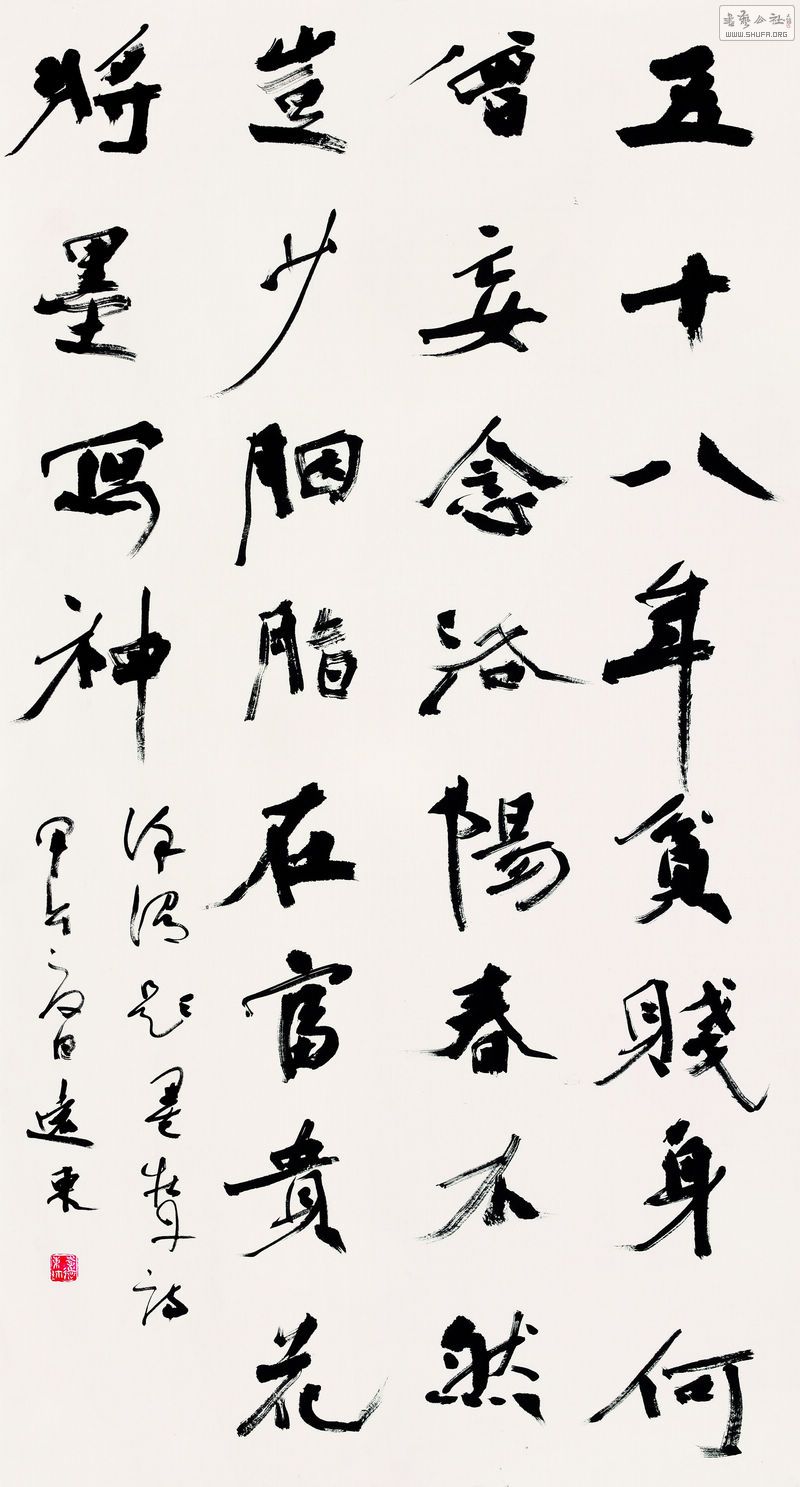 五十八年貧賤身何
曾妄念洛陽春不然
豈少胭脂在富貴花
將墨寫神
徐渭題墨牡丹詩
甲午夏日遠東
書藝公社
WWW.SHUFA.ORG